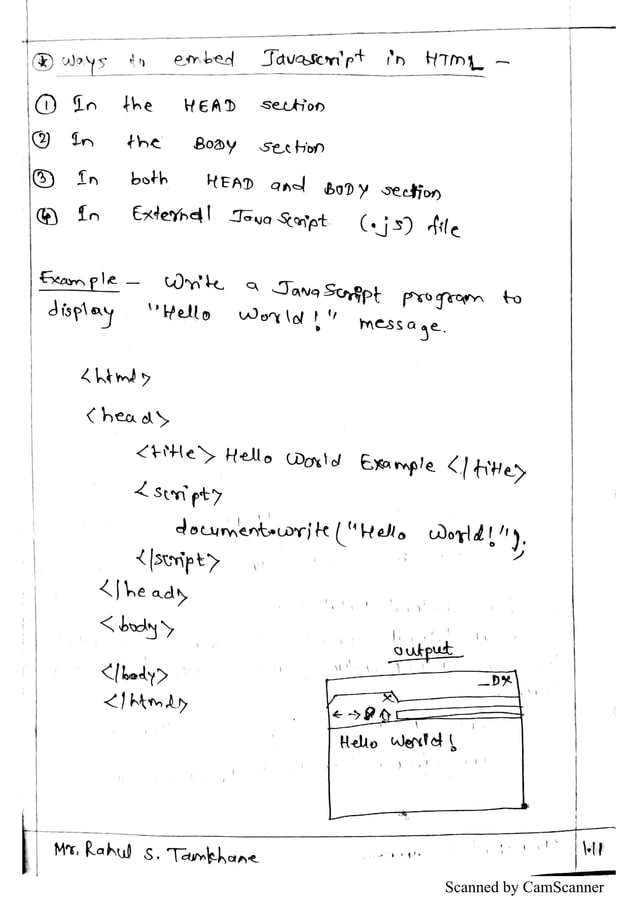 * Ways to embed Javascript in HTML -
① In the HEAD section
② In the BODY section
③ In both HEAD and BODY section
④ In External JavaScript (.js) file
Example - Write a JavaScript program to
display "Hello World!" message.
<html>
<head>
<title> Hello World Example </title>
<script>
document.write("Hello World!");
</script>
</head>
<body>
</body>
</html>
output
Hello World!
Mr. Rahul S. Tamkhane
1.11
Scanned by CamScanner